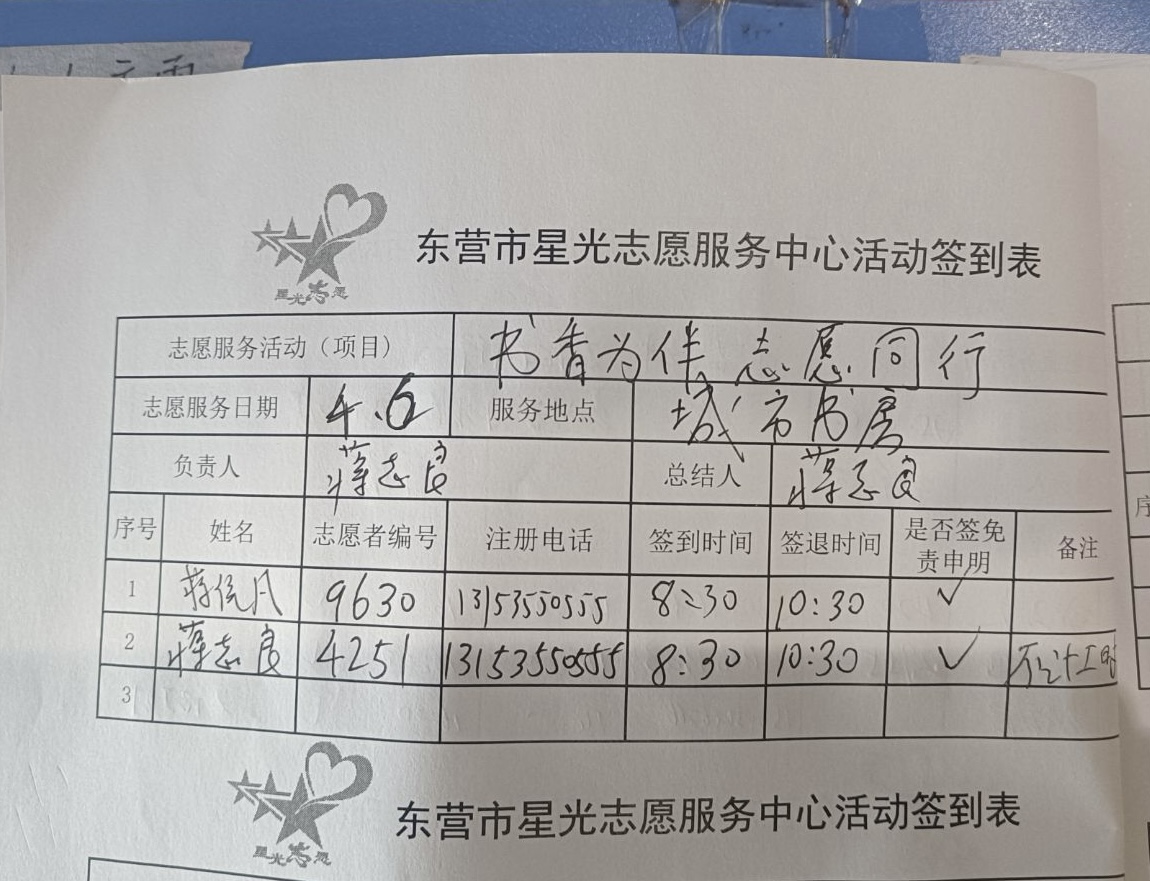 星光志愿
东营市星光志愿服务中心活动签到表
志愿服务活动（项目） 书香为伴 志愿同行
志愿服务日期 4.6 服务地点 城市书房
负责人 蒋志良 总结人 蒋志良
序号 姓名 志愿者编号 注册电话 签到时间 签退时间 是否签免责申明 备注
1 9630 13153550555 8:30 10:30 ✓
2 蒋志良 4251 13153550555 8:30 10:30 ✓ 不计工时
3
星光志愿
东营市星光志愿服务中心活动签到表
序